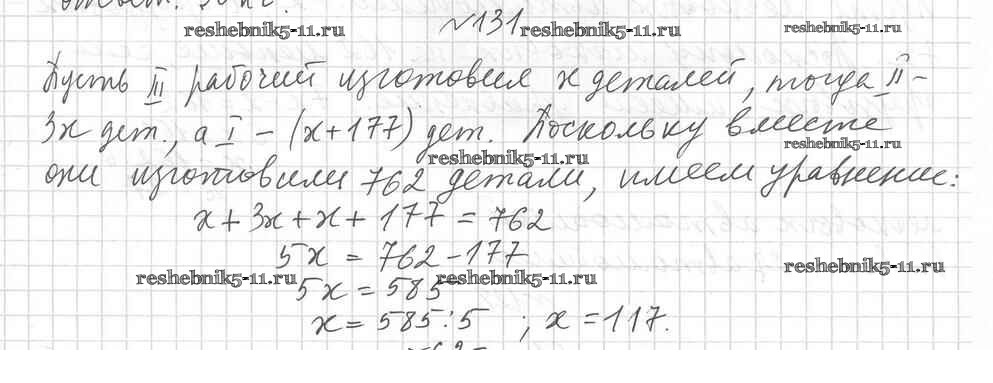 ответ: 30 кг.
№131
reshebnik5-11.ru reshebnik5-11.ru reshebnik5-11.ru
Пусть III рабочий изготовил x деталей, тогда II –
3x дет., а I – (x+177) дет. Поскольку вместе
reshebnik5-11.ru reshebnik5-11.ru
они изготовили 762 детали, имеем уравнение:
x + 3x + x + 177 = 762
5x = 762 - 177
reshebnik5-11.ru reshebnik5-11.ru reshebnik5-11.ru
5x = 585
x = 585:5 ; x = 117.